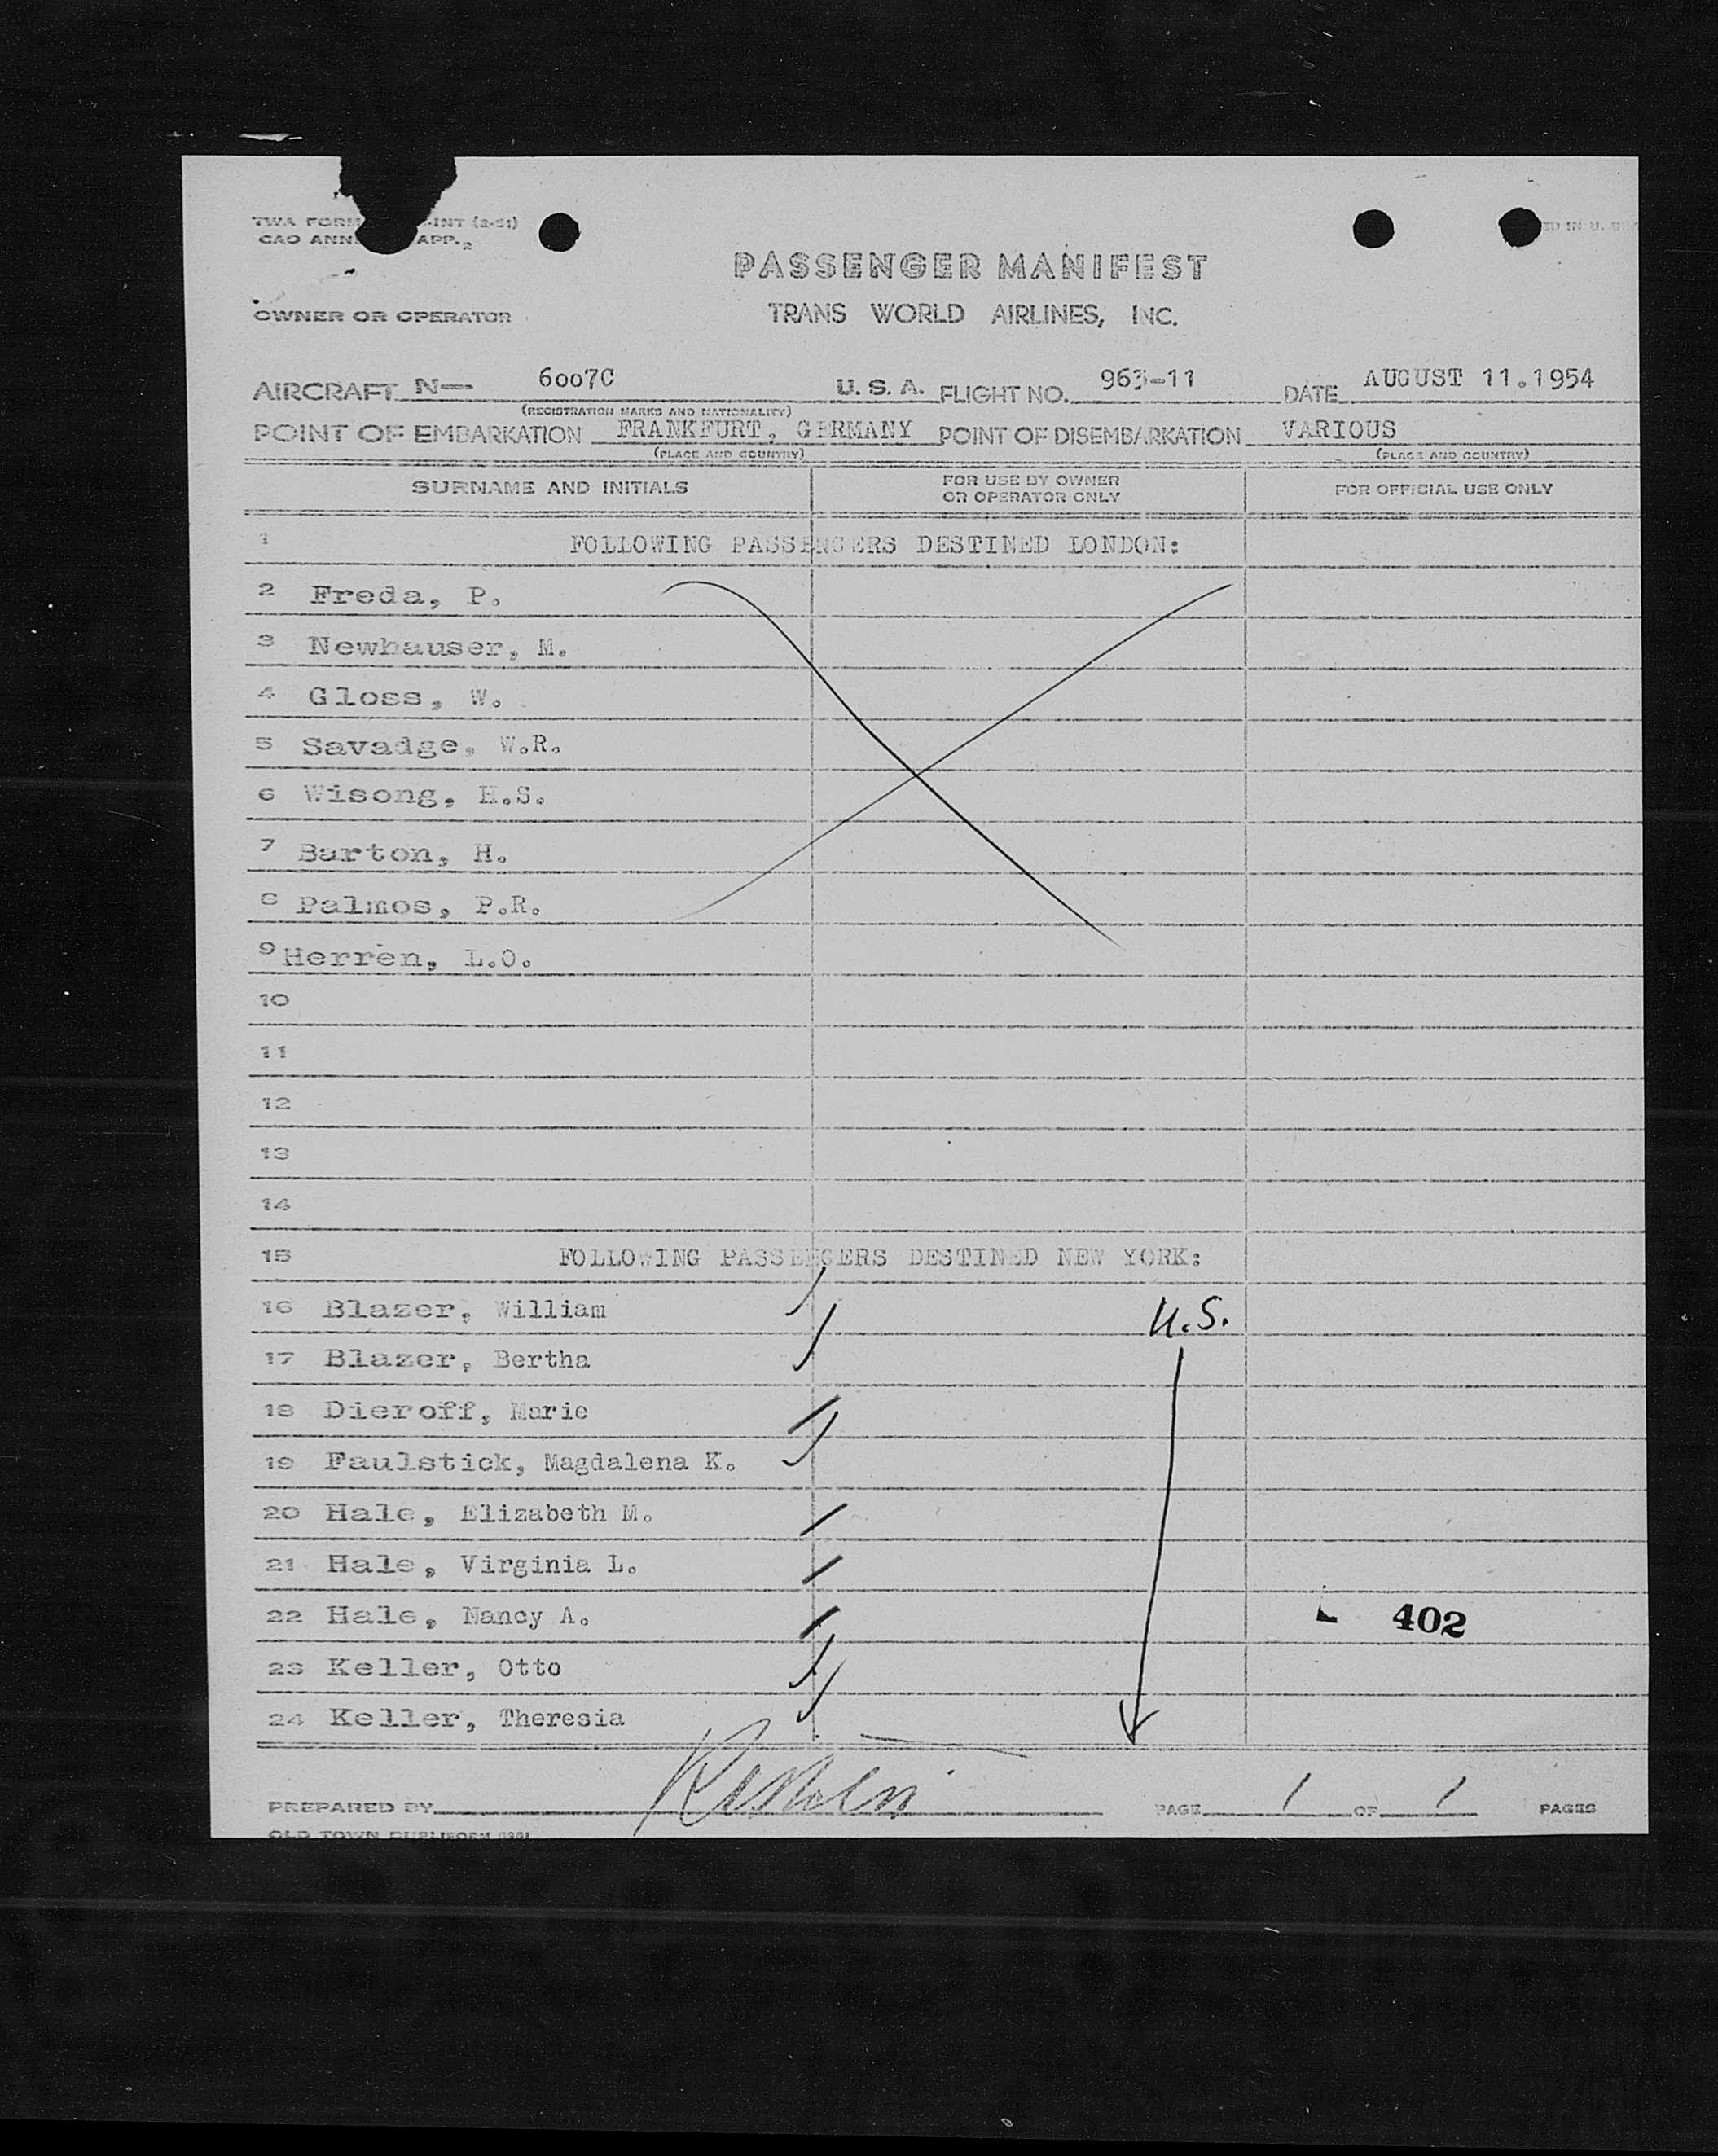 TWA FORM -INT (2-51)
CAO ANNE APP. 2
PASSENGER MANIFEST
OWNER OR OPERATOR TRANS WORLD AIRLINES, INC.
AIRCRAFT N— 6007C U. S. A. FLIGHT NO. 963-11 DATE AUGUST 11.1954
(REGISTRATION MARKS AND NATIONALITY)
POINT OF EMBARKATION FRANKFURT, GERMANY POINT OF DISEMBARKATION VARIOUS
(PLACE AND COUNTRY) (PLACE AND COUNTRY)
SURNAME AND INITIALS FOR USE BY OWNER OR OPERATOR ONLY FOR OFFICIAL USE ONLY
1 FOLLOWING PASSENGERS DESTINED LONDON:
2 Freda, P.
3 Newhauser, M.
4 Gloss, W.
5 Savadge, W.R.
6 Wisong, H.S.
7 Barton, H.
8 Palmos, P.R.
9 Herren, L.O.
10
11
12
13
14
15 FOLLOWING PASSENGERS DESTINED NEW YORK:
16 Blazer, William U.S.
17 Blazer, Bertha
18 Dieroff, Marie
19 Faulstick, Magdalena K.
20 Hale, Elizabeth M.
21 Hale, Virginia L.
22 Hale, Nancy A. 402
23 Keller, Otto
24 Keller, Theresia
PREPARED BY PAGE 1 OF 1 PAGES
OLD TOWN DUPLIFORM